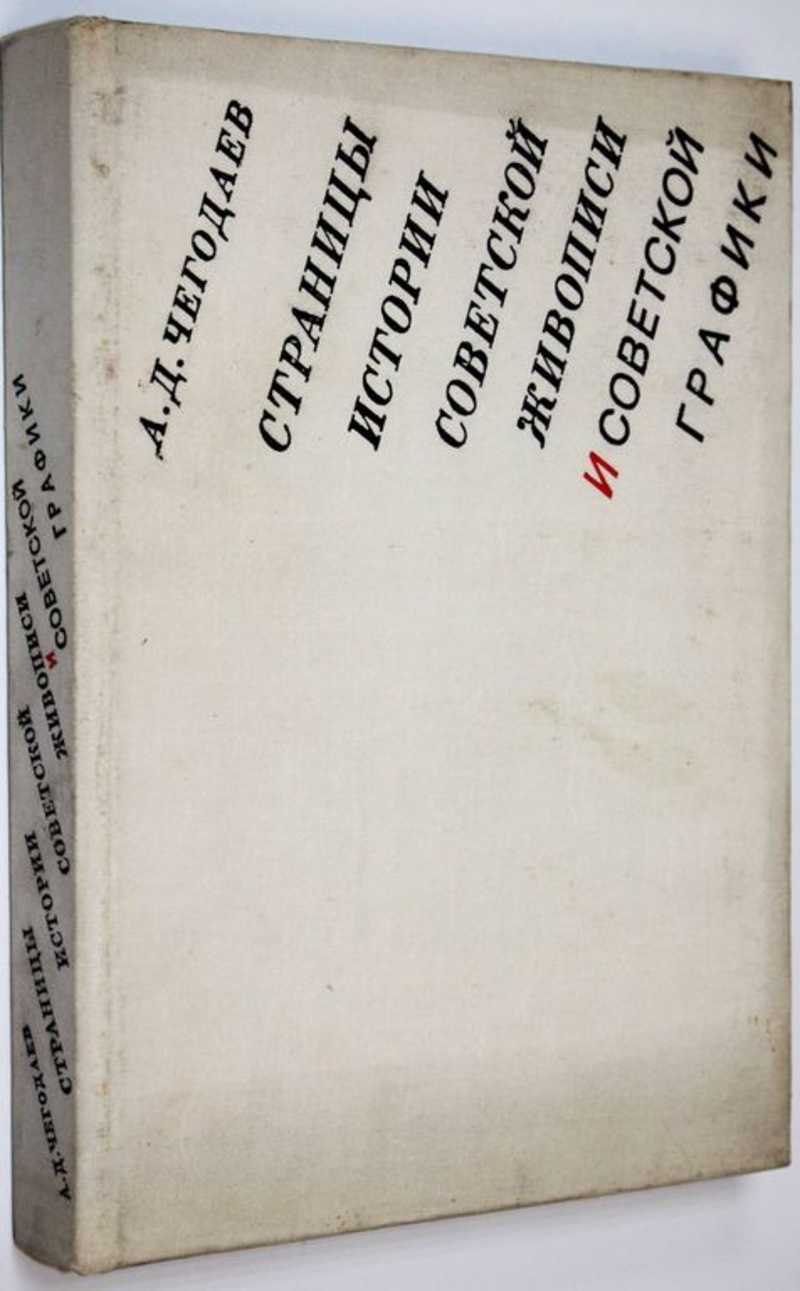 А. Д. ЧЕГОДАЕВ
СТРАНИЦЫ
ИСТОРИИ
СОВЕТСКОЙ
ЖИВОПИСИ
И СОВЕТСКОЙ
ГРАФИКИ
А. Д. ЧЕГОДАЕВ
СТРАНИЦЫ
ИСТОРИИ
СОВЕТСКОЙ
ЖИВОПИСИ
И СОВЕТСКОЙ
ГРАФИКИ